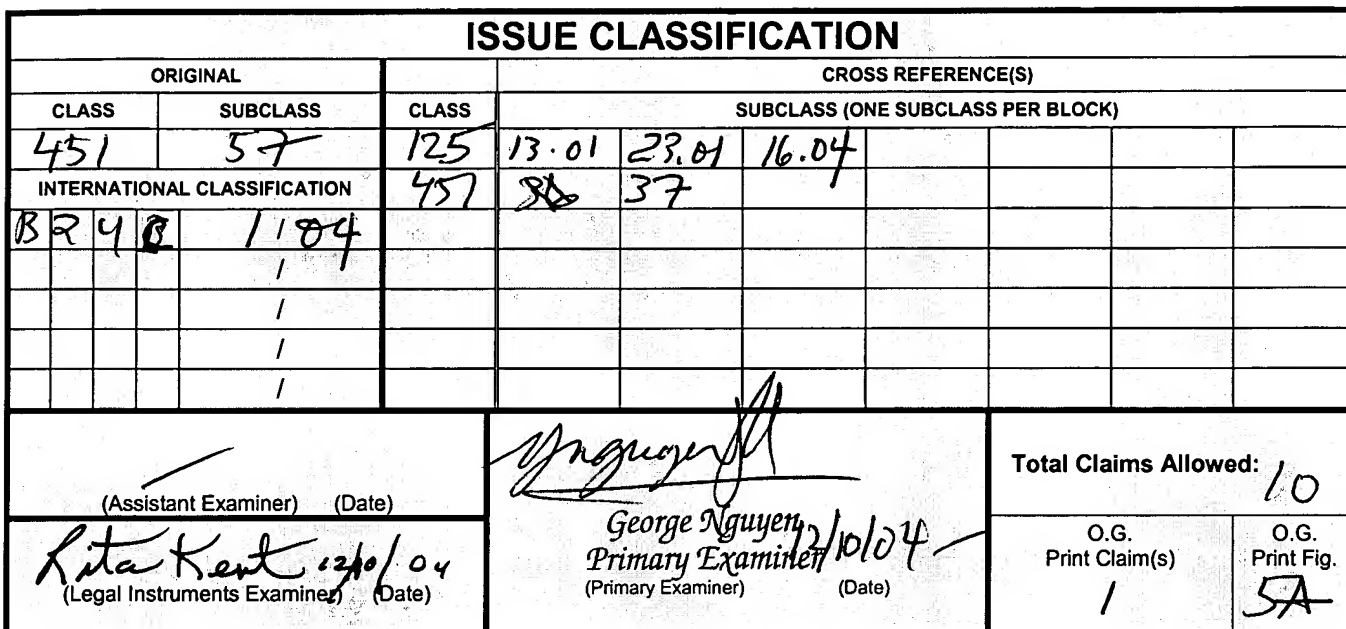 ISSUE CLASSIFICATION
ORIGINAL CROSS REFERENCE(S)
CLASS SUBCLASS CLASS SUBCLASS (ONE SUBCLASS PER BLOCK)
451 57 125 13.01 23.01 16.04
INTERNATIONAL CLASSIFICATION 451 37
B 2 4 B 1/04
/
/
/
/
(Assistant Examiner) (Date)
Rita Kent 12/10/04
(Legal Instruments Examiner) (Date)
George Nguyen
Primary Examiner 12/10/04
(Primary Examiner) (Date)
Total Claims Allowed: 10
O.G. Print Claim(s)
1
O.G. Print Fig.
5A